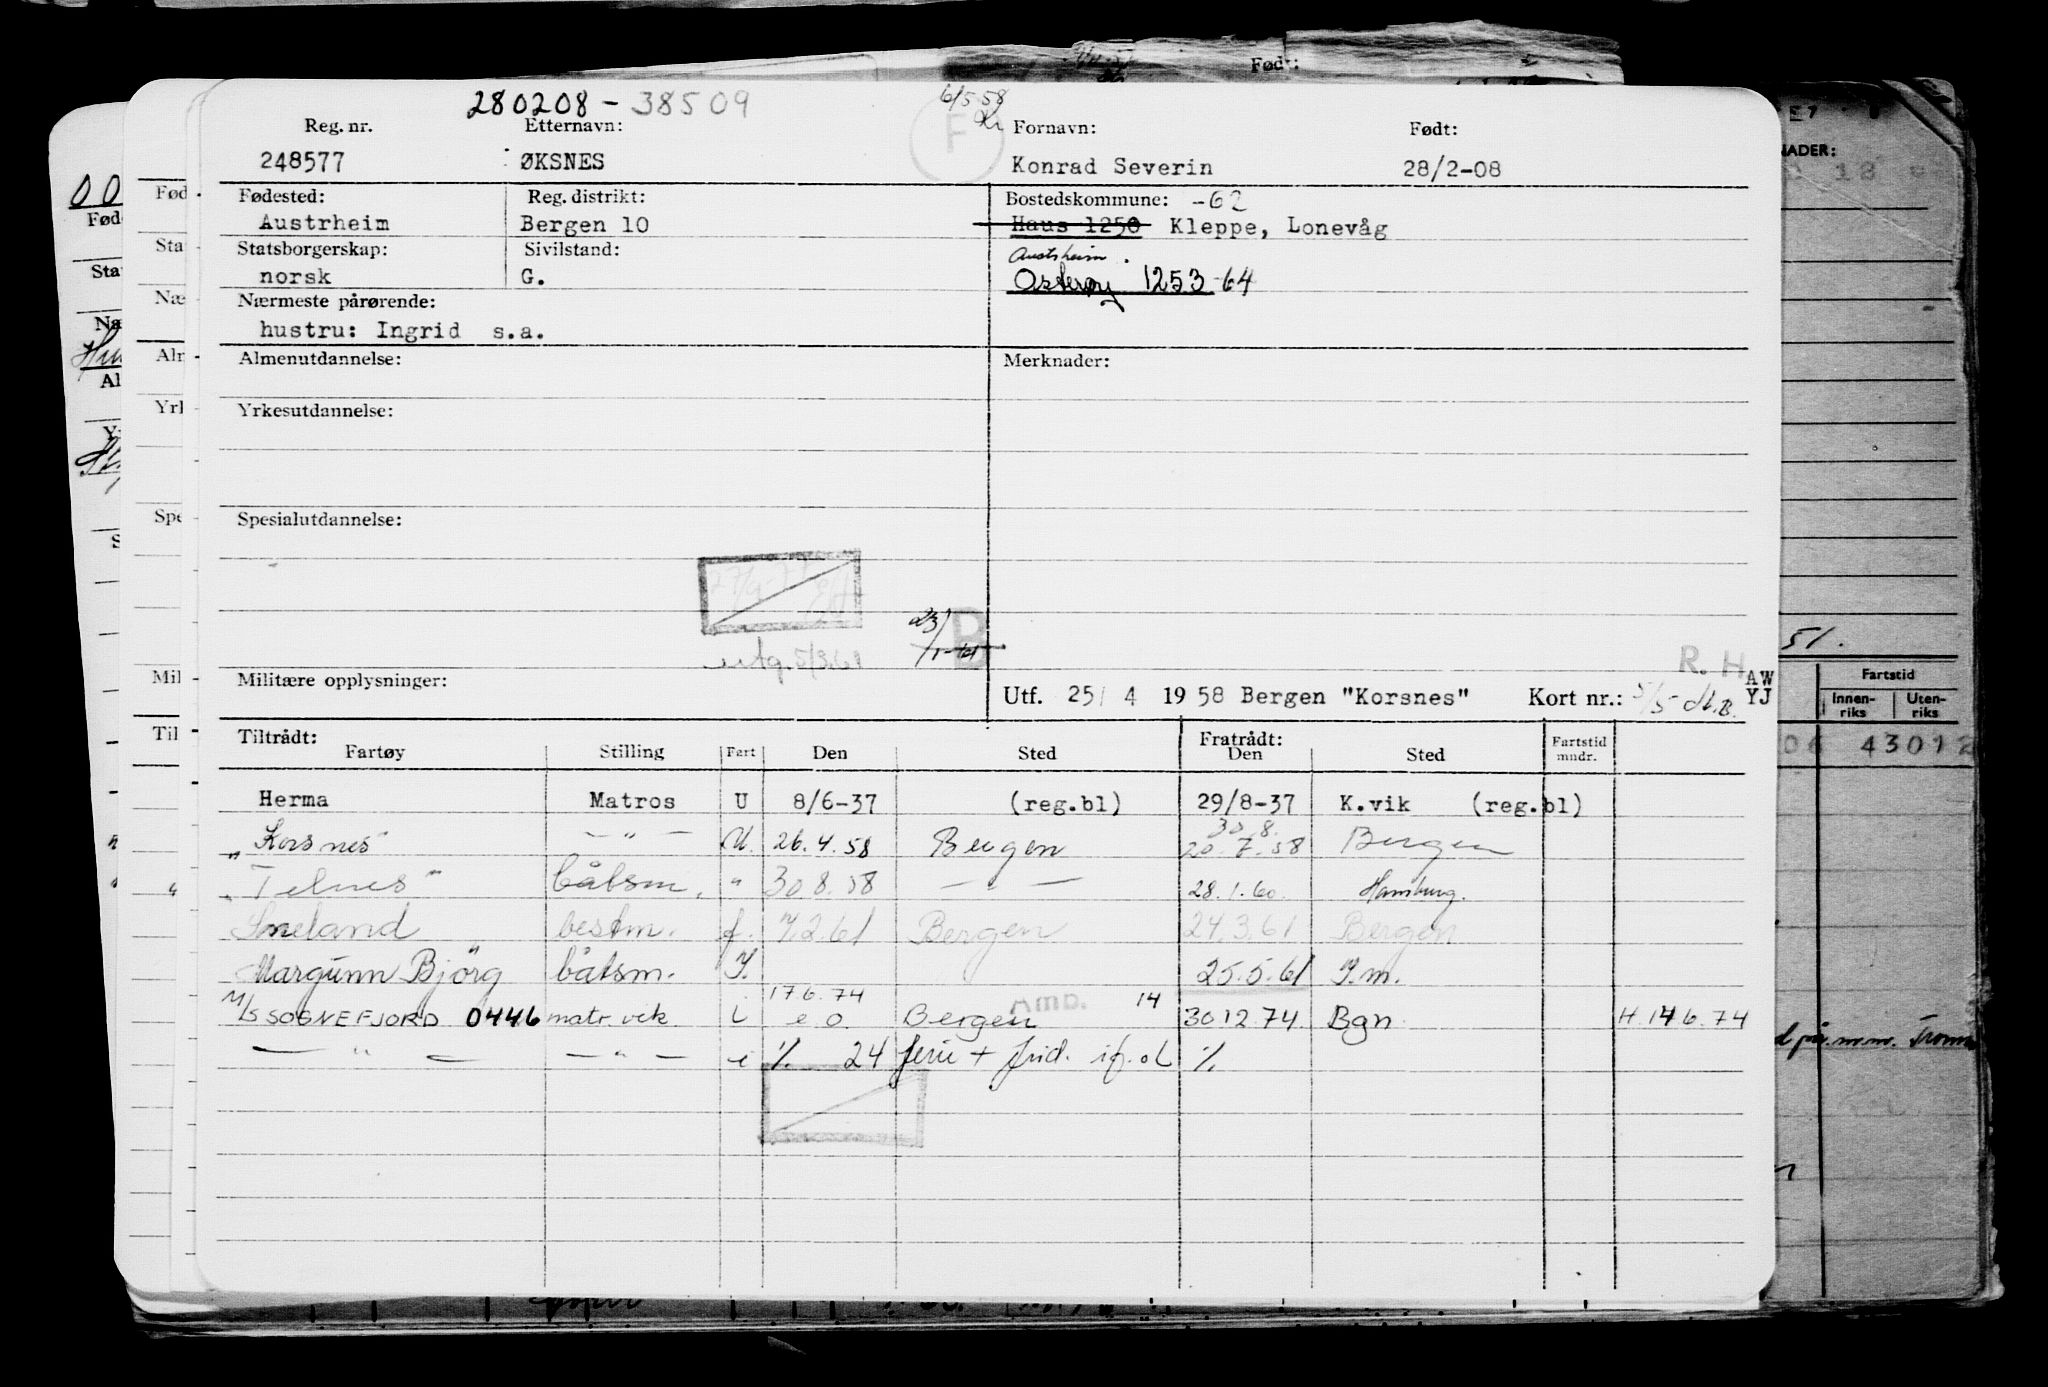 280208-38509
6/5-58
F
Reg. nr. Etternavn: Fornavn: Født:
248577 ØKSNES Konrad Severin 28/2-08
Fødested: Reg. distrikt: Bostedskommune: -62
Austrheim Bergen 10 Haus 1250 Kleppe, Lonevåg
Statsborgerskap: Sivilstand: Austrheim.
norsk G. Osterøy 1253-64
Nærmeste pårørende:
hustru: Ingrid s.a.
Almenutdannelse: Merknader:
Yrkesutdannelse:
Spesialutdannelse:
23/1-61 B
utg. 5/3.61
R. H AW
Militære opplysninger: Utf. 25/ 4 1958 Bergen "Korsnes" Kort nr.: 5/5- YJ
Tiltrådt: Fratrådt:
Fartøy Stilling Fart Den Sted Den Sted Fartstid mndr.
Herma Matros U 8/6-37 (reg.bl) 29/8-37 K.vik (reg.bl)
30.8.
"Korsnes" — " — U. 26.4.58 Bergen 20.7.58 Bergen
"Telnes" båtsm. " 30.8.58 — " — 28.1.60 Hamburg.
Sneland bestm. f. 7.2.61 Bergen 24.3.61 Bergen
Margunn Bjørg båtsm. I. 25.5.61 I.m.
17 6.74 Amb. 14
M/S SOGNEFJORD 0446 matr. vik. i e.o. Bergen 30 12.74 Bgn. H.14 6.74
— " — — " — i % 24 ferie + frid. if. ol %
Født:
NADER:
51.
Fartstid
Innenriks Utenriks
06 43012